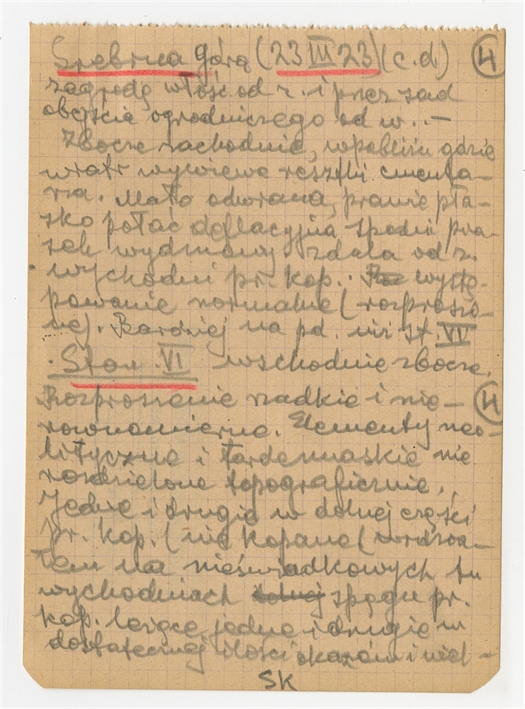 Srebrna górą (23 III 23) (c.d) 4
zagrodę włość od z. i przez sad
obejścia ogrodniczego od w. –
Zbocze zachodnie, w pobliżu gdzie
wiatr wywiewa resztki cmenta-
rza. Mało odwiana, prawie pła-
sko połać deflacyjna spodni pia-
sek wydmowy zdala od z.
wychodni pr. kop. wystę-
powanie normalne (rozproszo-
ne). Bardziej na pd. niż st. VII
Stan. VI wschodnie zbocze.
Rozproszenie rzadkie i nie- 4
równomierne. Elementy neo-
lityczne i tardenuaskie nie
rozdzielone topograficznie.
Jedne i drugie w dolnej części
pr. kop. (nie kopane
łem na nieświadkowych tu
wychodniach spągu pr.
kop. leżące jedne i drugie w
dostatecznej ilości okazów i niel-
SK